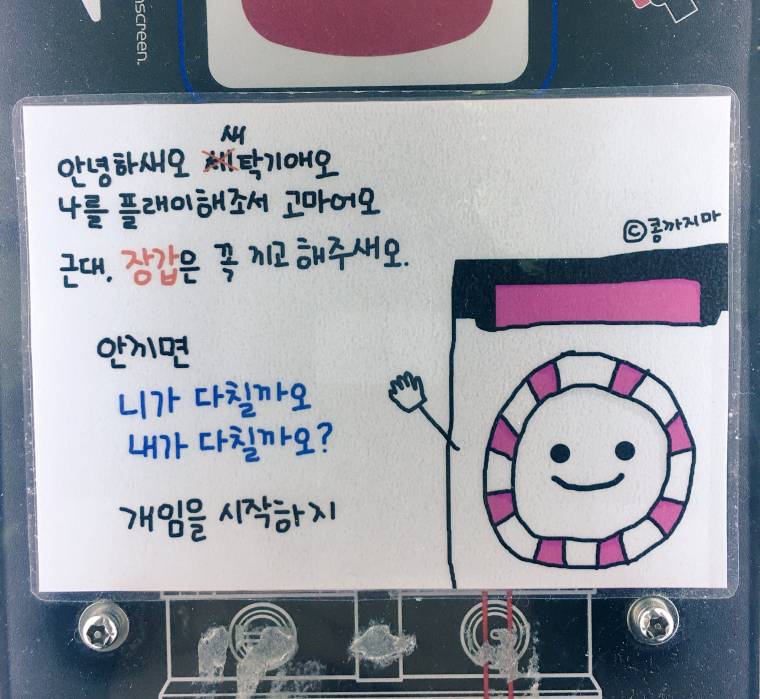 nscreen.
새
안녕하새오 세탁기애오
나를 플래이해조서 고마어오
©콩까지마
근대, 장갑은 꼭 끼고 해주새오.
안끼면
니가 다칠까오
내가 다칠까오?
개임을 시작하지